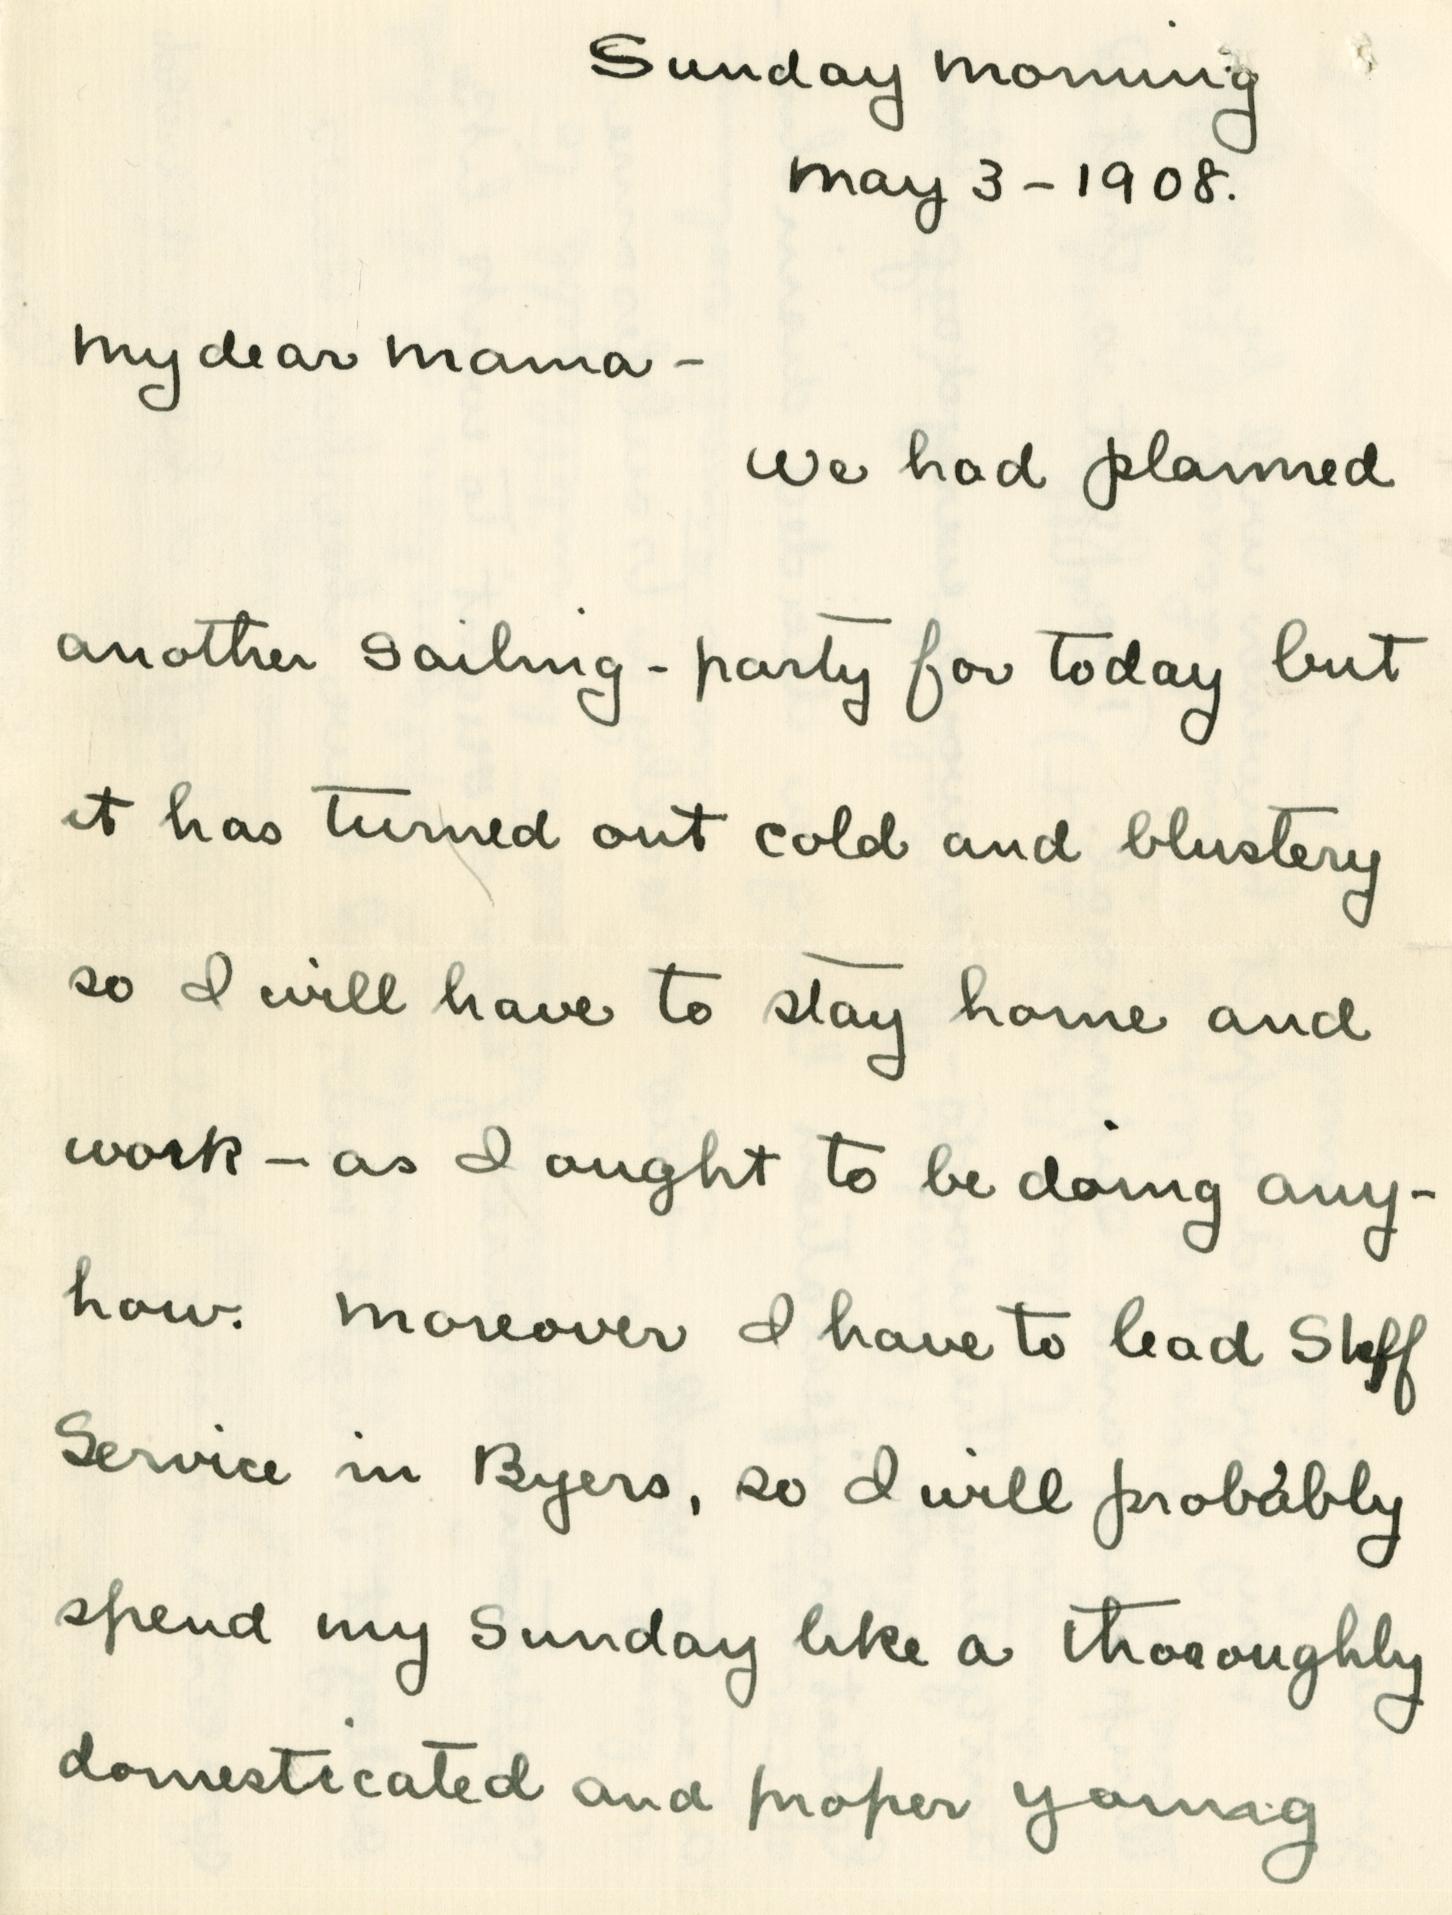 Sunday Morning
May 3 - 1908.
My dear Mama -
We had planned
another sailing - party for today but
it has turned out cold and blustery
so I will have to stay home and
work - as I ought to be doing any-
how. Moreover I have to lead
Service in Byers, so I will probably
spend my Sunday like a thoroughly
domesticated and proper young